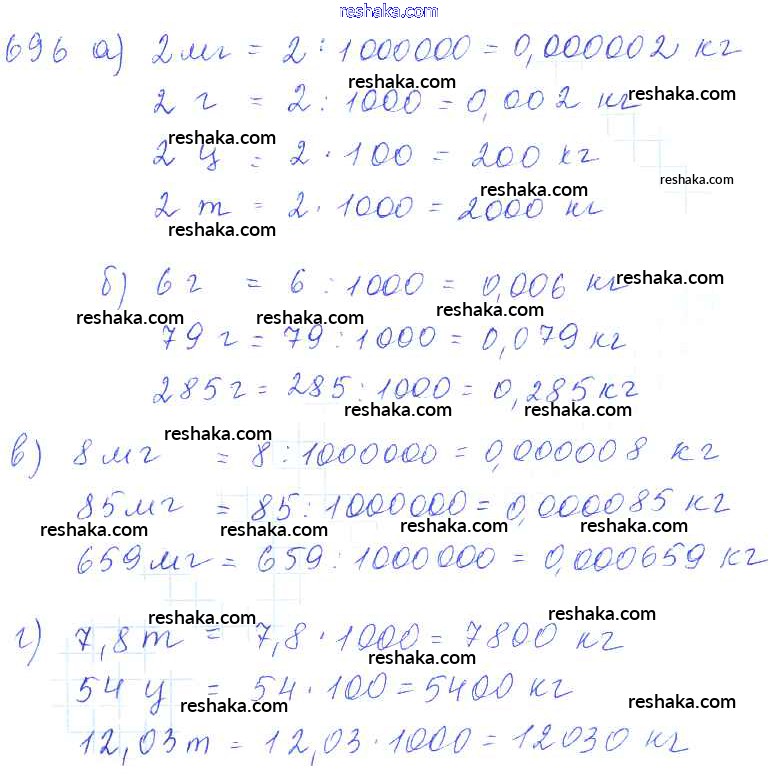 reshaka.com
696 а) 2 мг = 2 : 1000000 = 0,000002 кг
reshaka.com reshaka.com
2 г = 2 : 1000 = 0,002 кг
reshaka.com
2 ц = 2 · 100 = 200 кг
reshaka.com
reshaka.com
2 т = 2 · 1000 = 2000 кг
reshaka.com
б) 6 г = 6 : 1000 = 0,006 кг
reshaka.com
reshaka.com reshaka.com reshaka.com
79 г = 79 : 1000 = 0,079 кг
285 г = 285 : 1000 = 0,285 кг
reshaka.com reshaka.com
reshaka.com
в) 8 мг = 8 : 1000000 = 0,000008 кг
85 мг = 85 : 1000000 = 0,000085 кг
reshaka.com reshaka.com reshaka.com reshaka.com
659 мг = 659 : 1000000 = 0,000659 кг
reshaka.com reshaka.com
г) 7,8 т = 7,8 · 1000 = 7800 кг
reshaka.com
54 ц = 54 · 100 = 5400 кг
reshaka.com reshaka.com
12,03 т = 12,03 · 1000 = 12030 кг